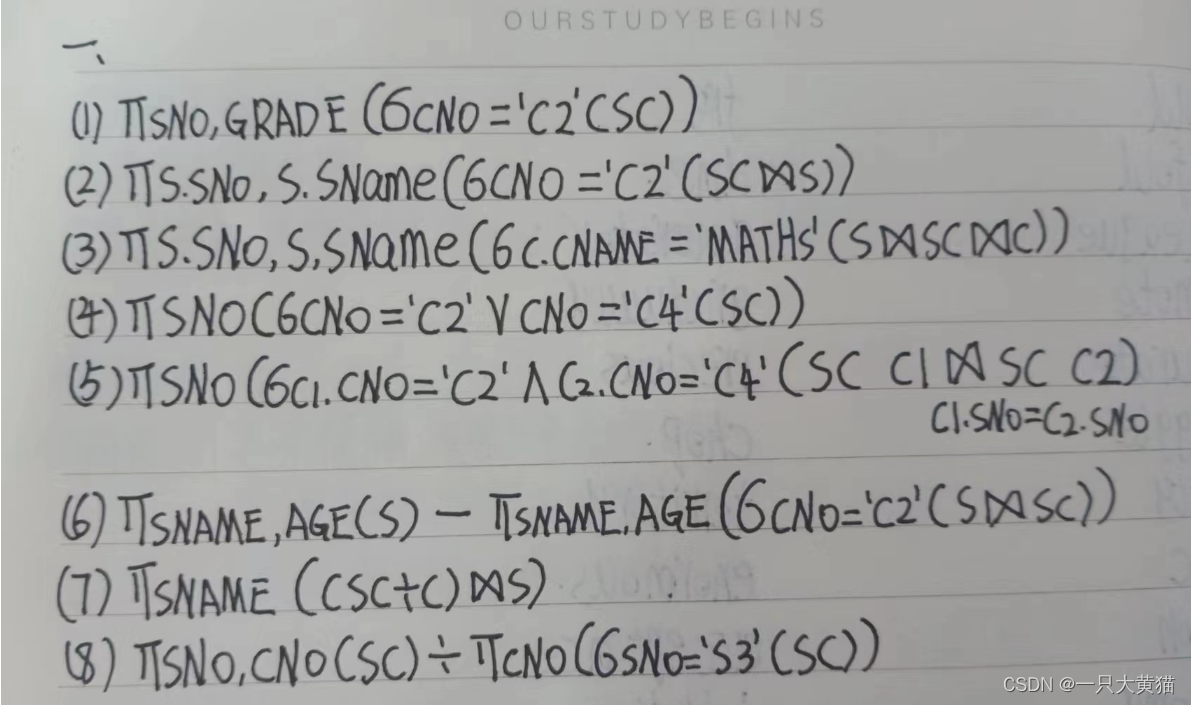 OURSTUDYBEGINS
一、
(1) πSNO,GRADE (6CNO='C2'(SC))
(2) πS.SNo, S.SName(6CNO='C2'(SC⋈S))
(3) πS.SNo, S,SName(6C.CNAME='MATHs'(S⋈SC⋈C))
(4) πSNO(6CNO='C2' V CNO='C4'(SC))
(5) πSNO(6C1.CNO='C2' Λ C2.CNO='C4'(SC C1 ⋈ SC C2)
C1.SNo=C2.SNO
(6) πSNAME,AGE(S) − πSNAME,AGE(6CNO='C2'(S⋈SC))
(7) πSNAME (CSC÷C)⋈S)
(8) πSNO,CNO(SC) ÷ πCNO(6SNO='S3'(SC))
CSDN @一只大黄猫